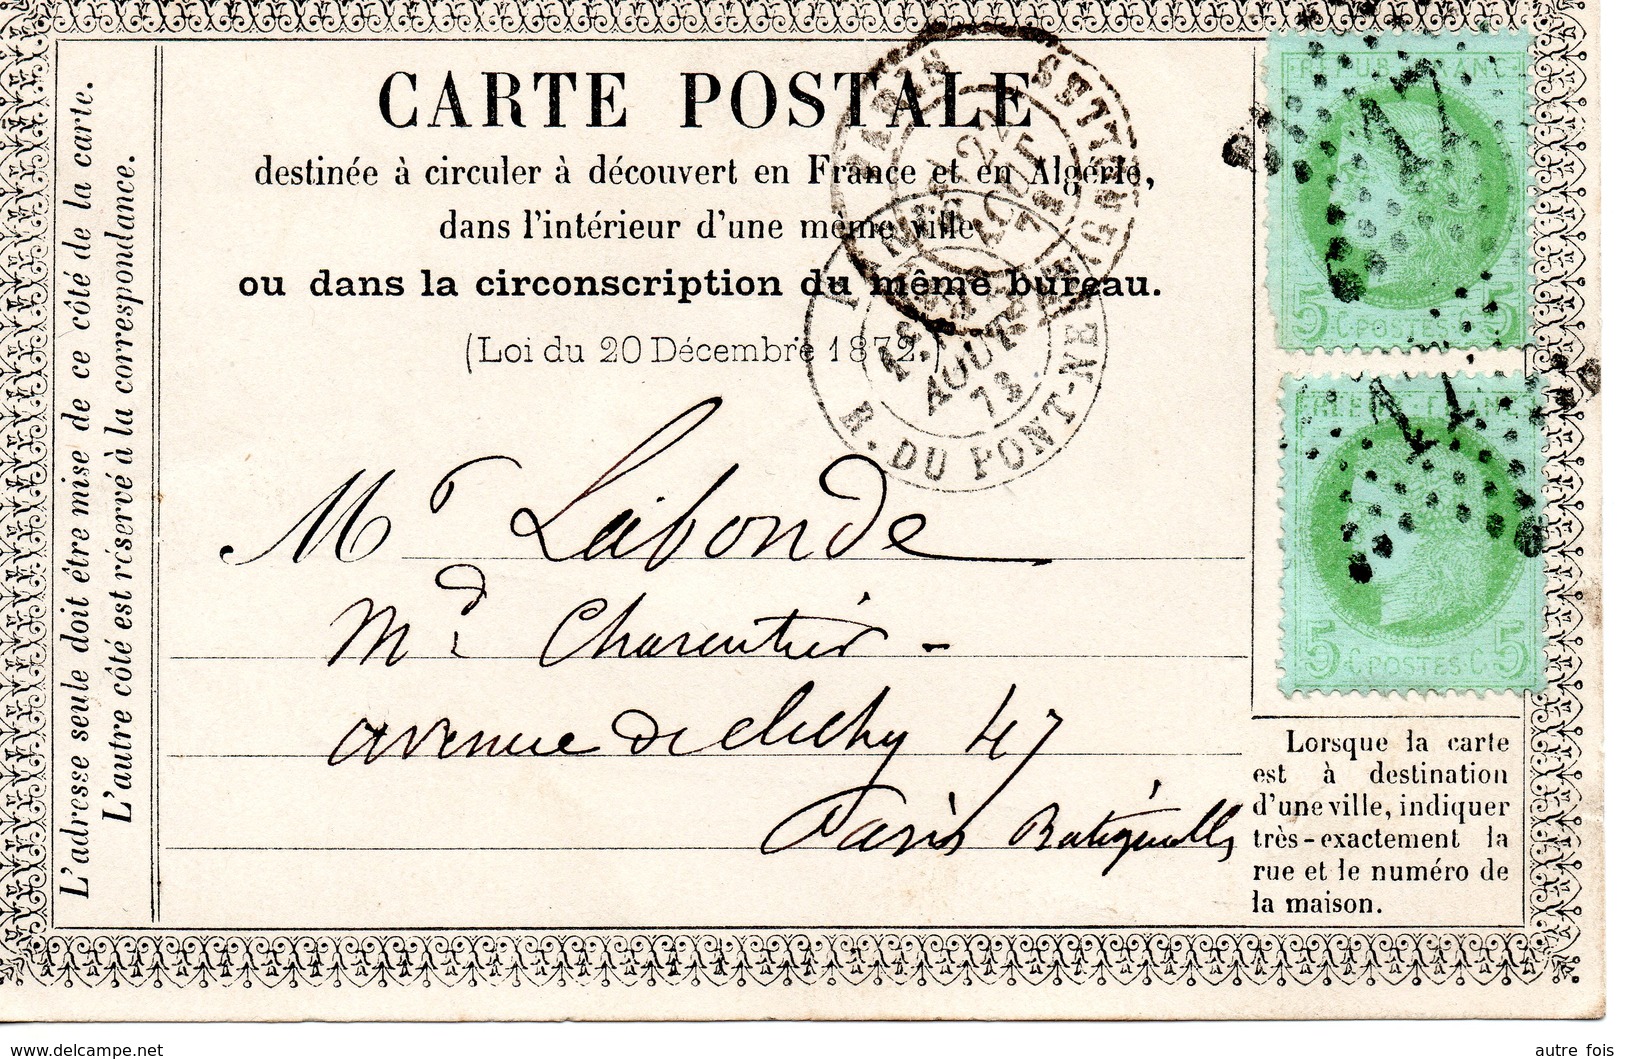 CARTE POSTALE
destinée à circuler à découvert en France et en Algérie,
dans l'intérieur d'une même ville
ou dans la circonscription du même bureau.
(Loi du 20 Décembre 1872.)
L'adresse seule doit être mise de ce côté de la carte.
L'autre côté est réservé à la correspondance.
PARIS
R. DU PONT-NEUF
AOUT
73
22
AOUT
73
REPUB FRANC
5 C. POSTES C. 5
FRANC
5 C. POSTES C. 5
Mr Labonde
Md Charentier -
avenue de Clichy 47
Paris Batignolles
Lorsque la carte
est à destination
d'une ville, indiquer
très-exactement la
rue et le numéro de
la maison.
www.delcampe.net
autre fois